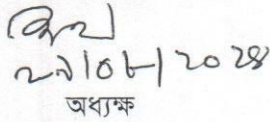 ২৯|০৮|২০২৪
অধ্যক্ষ